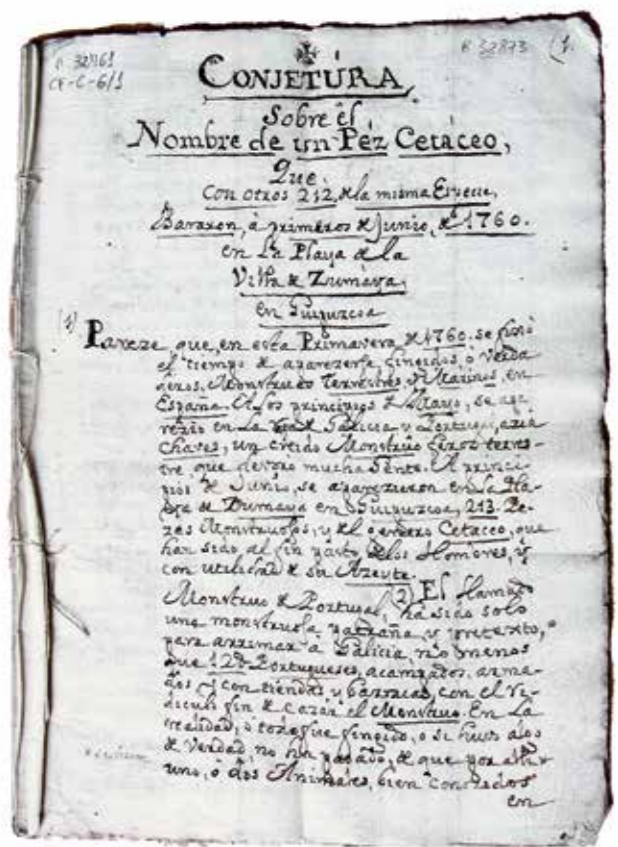 R. 32961
CF-C-6/1
R 32873 (1.
CONJETÚRA,
Sobre êl
Nombre de un Péz Cetáceo,
Que,
Con otros 212, de la misma Especie,
Bararon, à primeros de Junio, de 1760.
en La Playa de la
Villa de Zumaya,
en Guipuzcoa
(1) Pareze que, en esta Primavera de 1760. se fixó
el tiempo de aparezerse fingidos, o verda
deros, Monstruos Terrestres, y Marinos, en
España. A los principios de Mayo, se apa
rezio en La de Galicia y Portugal, àzia
Chaves, un creido Monstruo feroz terres-
tre, que devoro mucha Gente. A princi-
pios de Junio, se aparezieron en la Pla-
ya de Zumaya en Guipuzcoa, 213. Pe-
zes Monstruosos, y del genero Cetaceo, que
han sido al fin pasto de los Hombres, y
con utilidad de su Azeyte.
(2) El llamado
Monstruo de Portugal, ha sido solo
una monstruosa patraña, y pretexto,
para arrimar a Galicia, no menos
que 12 Portugueses, acampados, arma-
dos y con tiendas y barracas, con el ri-
diculo fin de cazar el Monstruo. En La
realidad, ò todo fue fingido, o si huvo algo
de verdad, no ha pasado, de que por allí
uno, ò dos Animales, bien conocidos
en